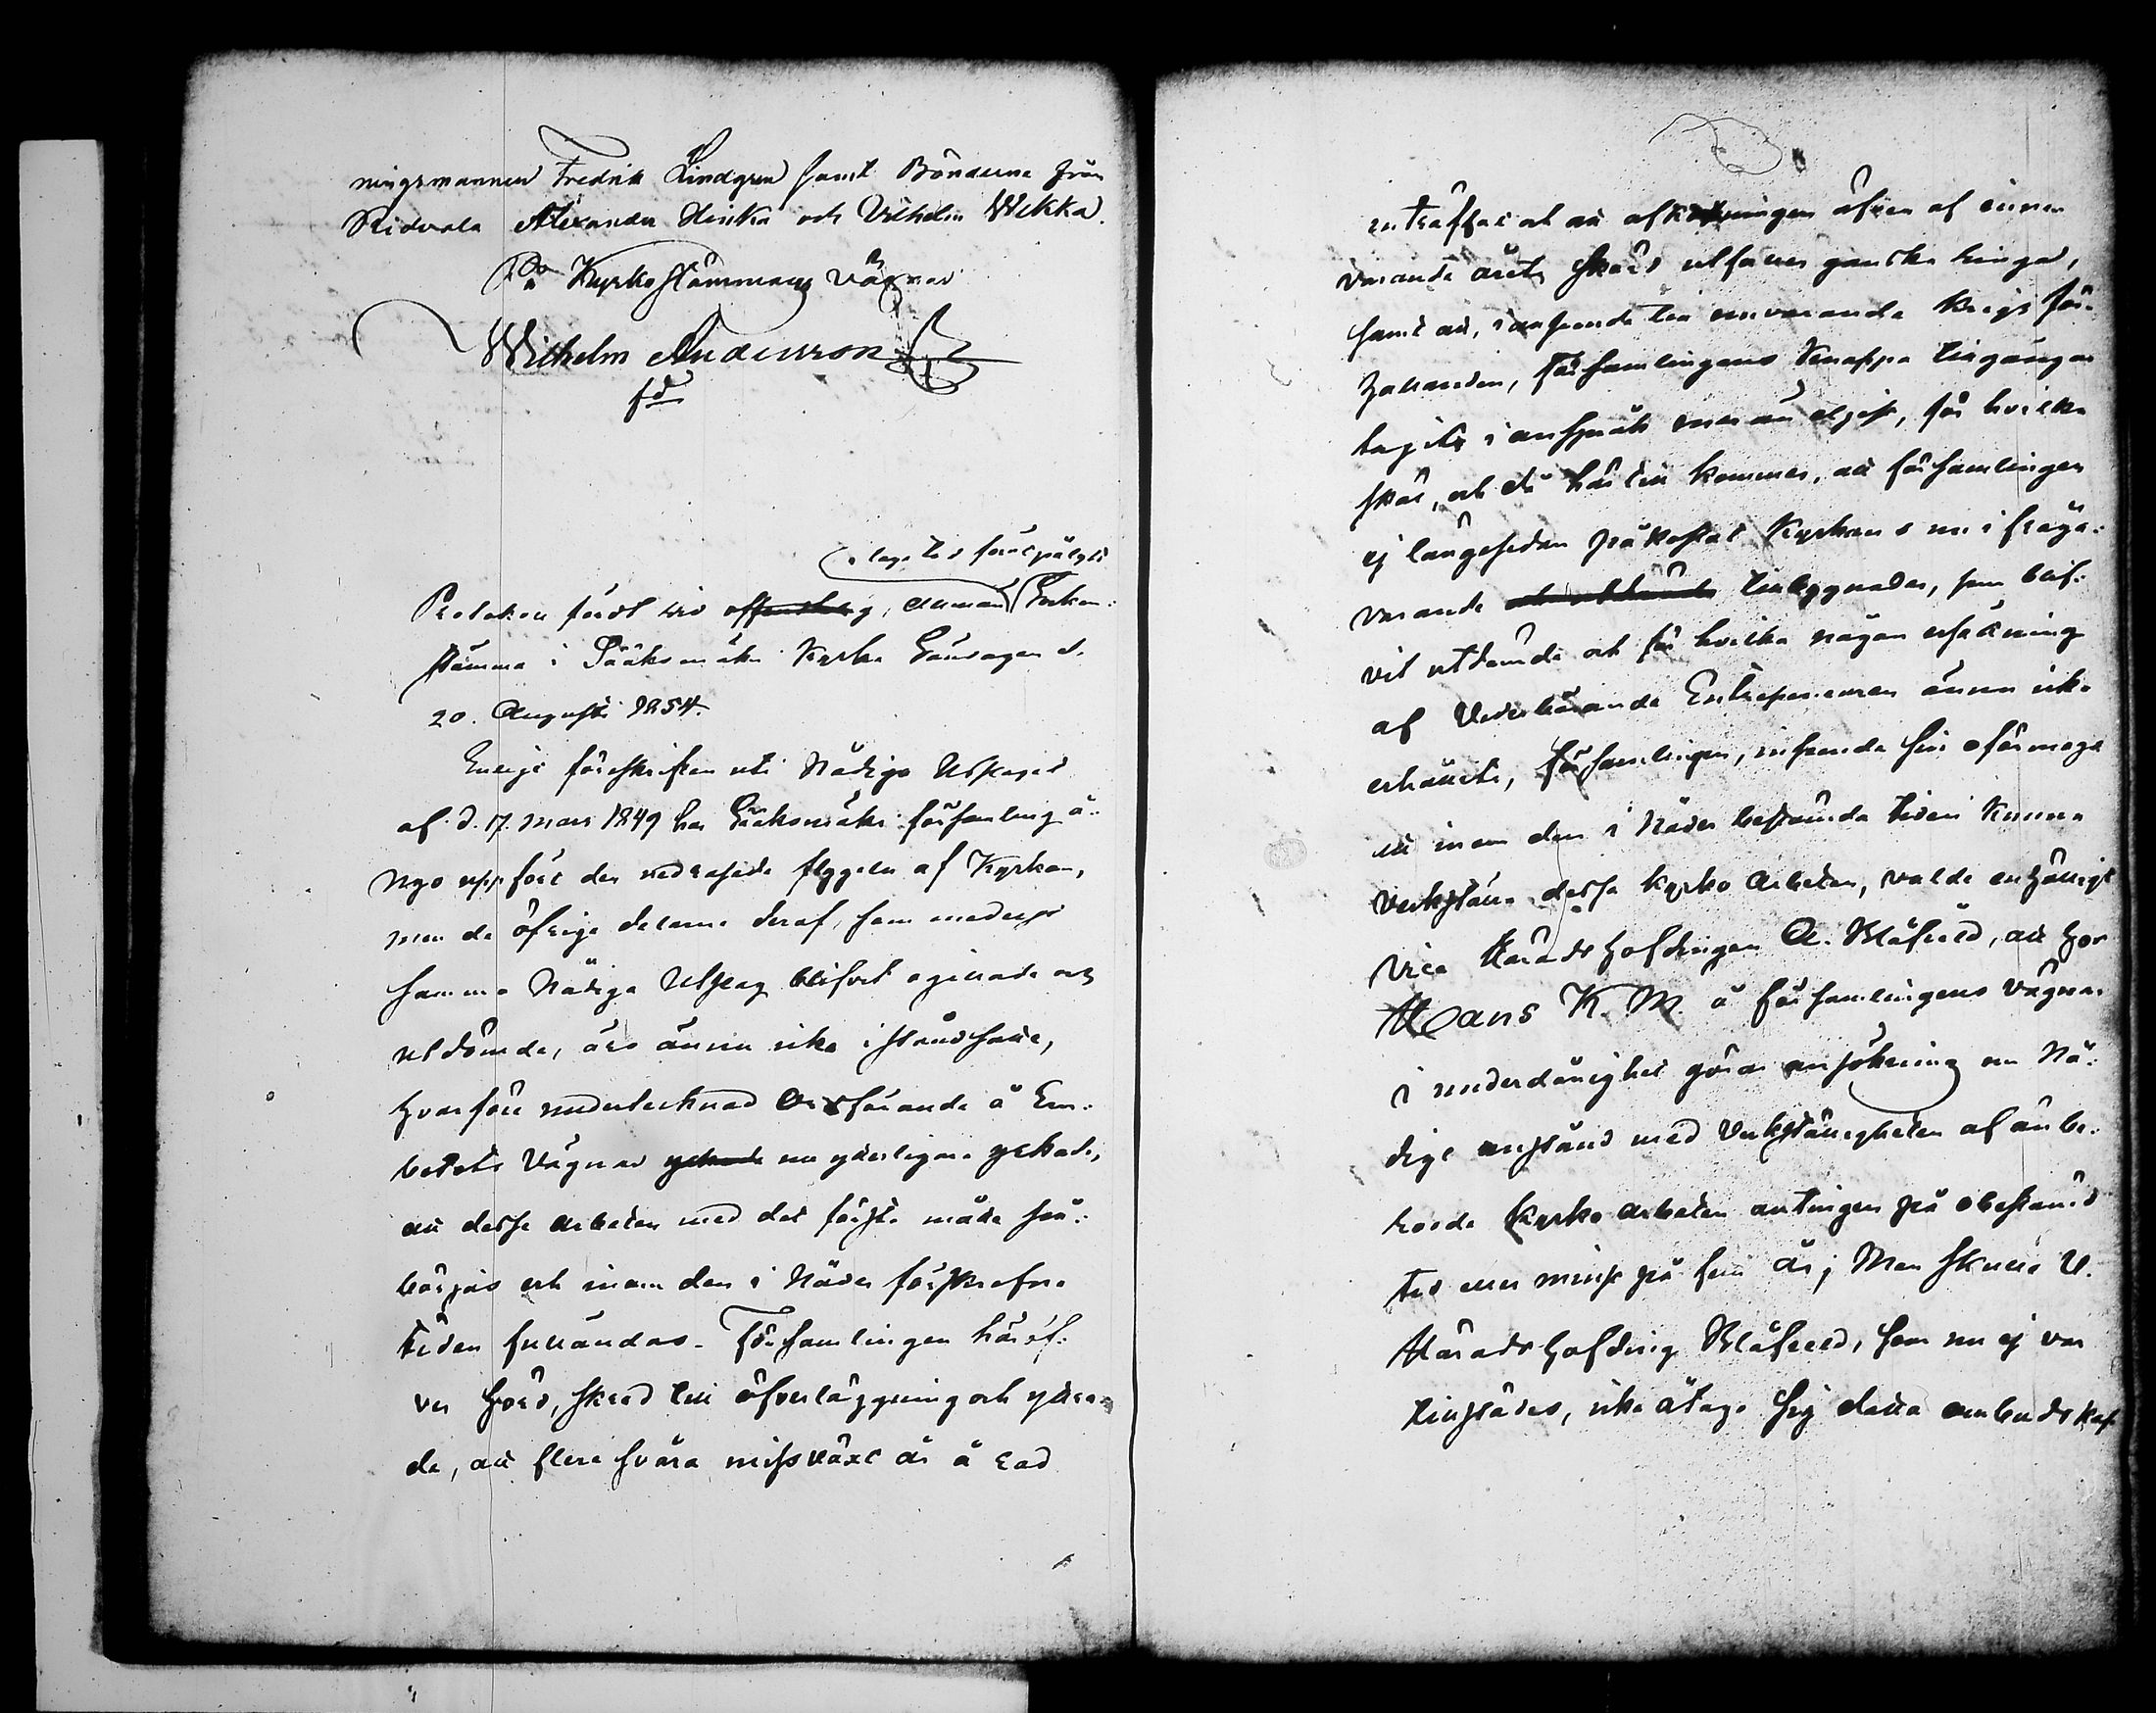 ningsmannen Fredrik Lindgren samt Bönderne från
Ridvala Alexander Heikka och Vilhelm Wekka.
På Kyrkostämmans vägnar
Wilhelm Andersson
lageted förut pålyst
Protokoll fördt vid offentlig, allmän Socken:
stämma i Sääksmäki Kyrka Söndagen d.
20. Augusti 1854.
Enligt föreskriften uti Nådiga Utslaget
af d. 17. Mars 1849 har Sääksmäki församling å:
nyo uppfört den nedrasade flygeln af Kyrkan,
men de öfrige delarne deraf, som medelst
samma Nådiga Utslag blifvit ogillade och
utdömde, äro ännu icke i stånd satte,
hvarföre undertecknad Ordförande å Em:
betets Vägnar yrkade nu ytterligare yrkade,
att desse arbeten med det första måtte på:
börjas och inom den i Nåder föreskrefne
tiden fulländas. Församlingen häröf:
ver hörd, skred till öfverläggning och yttra:
de, att flere svåra missväxt år å rad
inträffat och att afkastningen äfven af innev
varande årets skörd utfaller ganska ringa,
samt att, i anseende till omvarande Krigs för:
hållanden, församlingens knappa tillgångar
tagits i anspråk mer än eljest, för hvilka
skäl, och då härtill kommer, att församlingen
ej längesedan påkostat Kyrkans nu i fråga:
varande tillbyggnader, som blif:
vit utdömde och för hvilka någon ersättning
af Vederbörande Entreprenören ännu icke
erhållits, församlingen, inseende sin oförmåga
att inom den i Nåder bestämda tiden kunna
verkställa dessa kyrko arbeten, valde enhälligt
Vice Häradshöfdingen A. Blåfield, att hos
Hans K. M. å församlingens Vägnar
i underdånighet göra ansökning om Nå:
digt anstånd med Verkställigheten af ånbe:
rörde Kyrko arbeten antingen på obestämd
tid eller minst på fem år; Men skulle V.
Häradshöfding Blåfield, som nu ej var
tillstädes, icke åtaga sig detta ombudskap